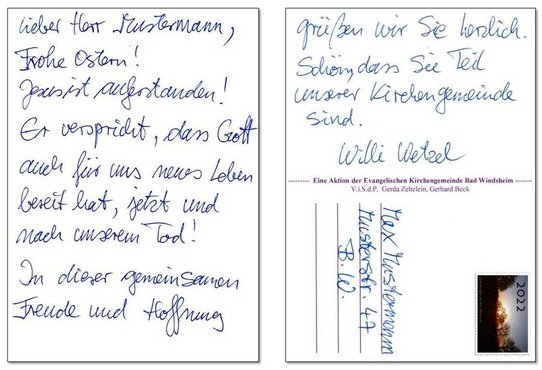 Lieber Herr Mustermann,
Frohe Ostern!
Jesus ist auferstanden!
Er verspricht, dass Gott
auch für uns neues Leben
bereit hat, jetzt und
nach unserem Tod!
In dieser gemeinsamen
Freude und Hoffnung
grüßen wir Sie herzlich.
Schön, dass Sie Teil
unserer Kirchengemeinde
sind.
Willi Wetzel
Eine Aktion der Evangelischen Kirchengemeinde Bad Windsheim
V.i.S.d.P. Gerda Zehelein, Gerhard Beck
Max Mustermann
Musterstr. 47
B.W.
2022